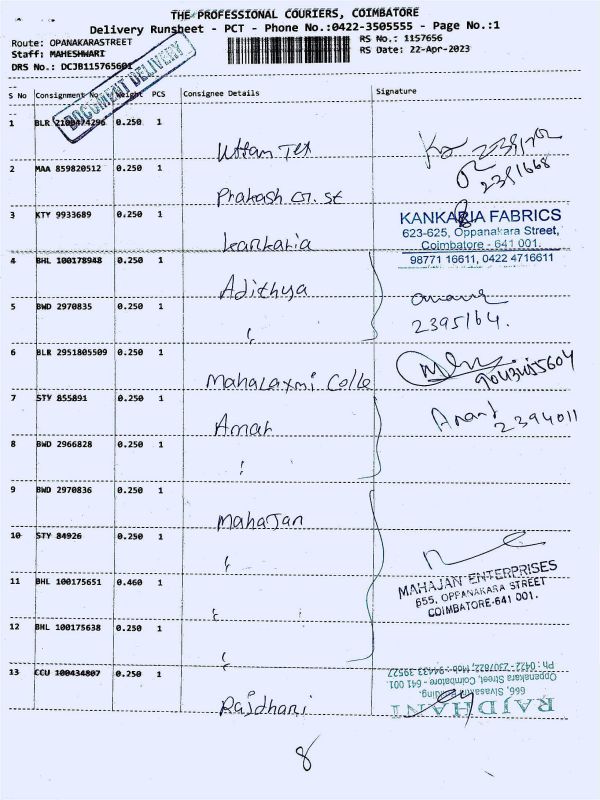 THE PROFESSIONAL COURIERS, COIMBATORE
Delivery Runsheet - PCT - Phone No.:0422-3505555 - Page No.:1
Route: OPANAKARASTREET
RS No.: 1157656
Staff: MAHESHWARI
RS Date: 22-Apr-2023
DRS No.: DCJB115765601
DOCUMENT DELIVERY
S No Consignment No Weight PCS Consignee Details Signature
1 BLR 2100474296 0.250 1 Uttam Tex
2 MAA 859820512 0.250 1 Prakash
3 KTY 9933689 0.250 1 kankaria
KANKARIA FABRICS
623-625, Oppanakara Street,
Coimbatore - 641 001.
98771 16611, 0422 4716611
4 BHL 100178948 0.250 1 Adithya
5 BWD 2970835 0.250 1 "
2395164.
6 BLR 2951805509 0.250 1 Mahalaxmi Colle
7 STY 855891 0.250 1 Amar
Anant
2394011
8 BWD 2966828 0.250 1 "
9 BWD 2970836 0.250 1 Mahajan
10 STY 84926 0.250 1 "
11 BHL 100175651 0.460 1 "
MAHAJAN ENTERPRISES
655, OPPANAKARA STREET
COIMBATORE-641 001.
12 BHL 100175638 0.250 1 "
13 CCU 100434807 0.250 1 Rajdhani
RAJDHANI
666, Sivasakthi Building,
Oppanakara Street, Coimbatore - 641 001.
Ph : 0422 - 2307822, Mob : 94433 39527
8